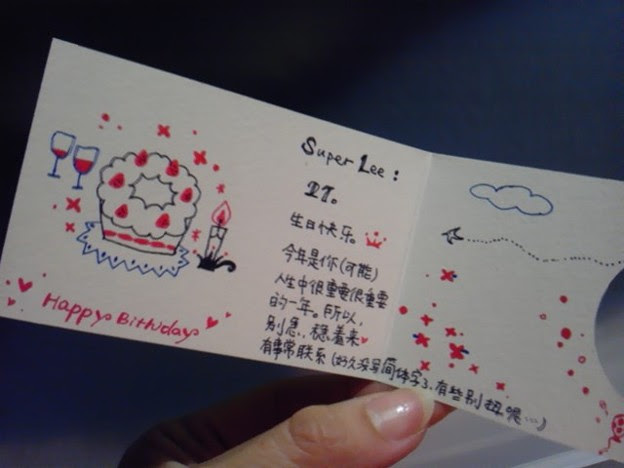 Super Lee:
27。
生日快乐。
今年是你(可能)
人生中很重要很重要
的一年。所以,
别急,稳着来
有事常联系(好久没写简体字了,有些别扭呢…)
Happy Birthday